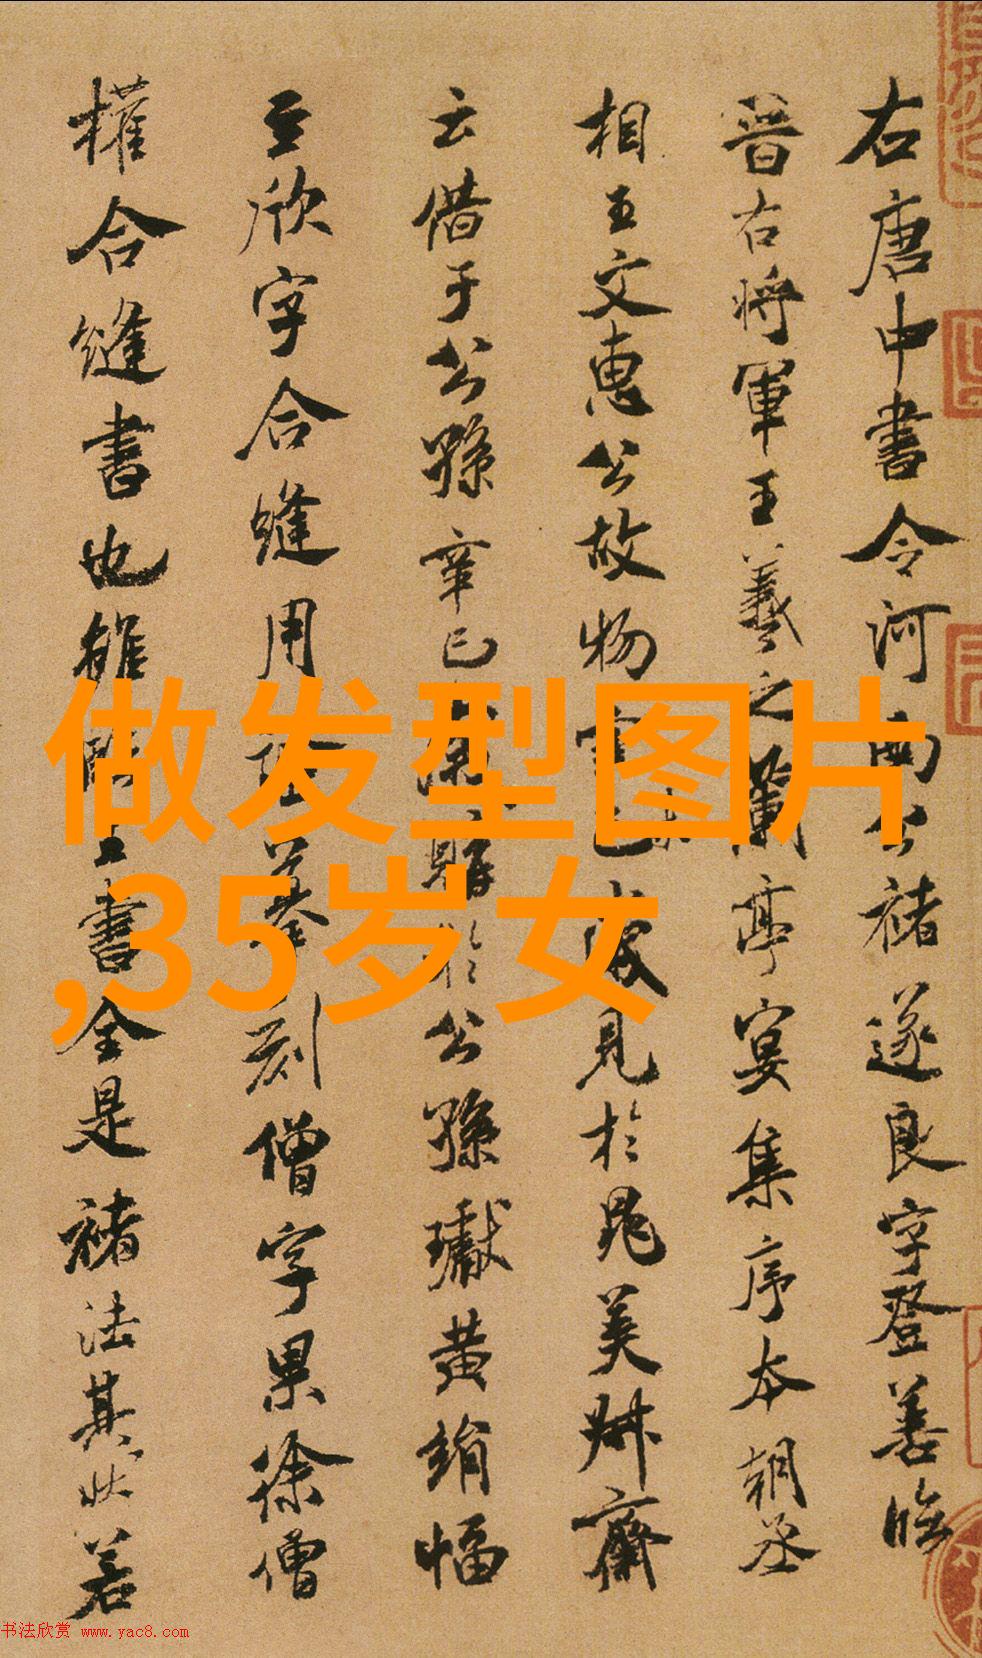 右唐中書令河南公褚遂良字登善臨
晉右將軍王羲之蘭亭宴集序本朝丞
相王文惠公故物 見於晁美叔齋
云借于公孫辛巳 於公孫瓛黃絹幅
至欣字合縫用 刻僧字果徐僧
權合縫書也雖 書全是褚法其狀若
做发型图片
,35岁女
书法欣赏 www.yac8.com